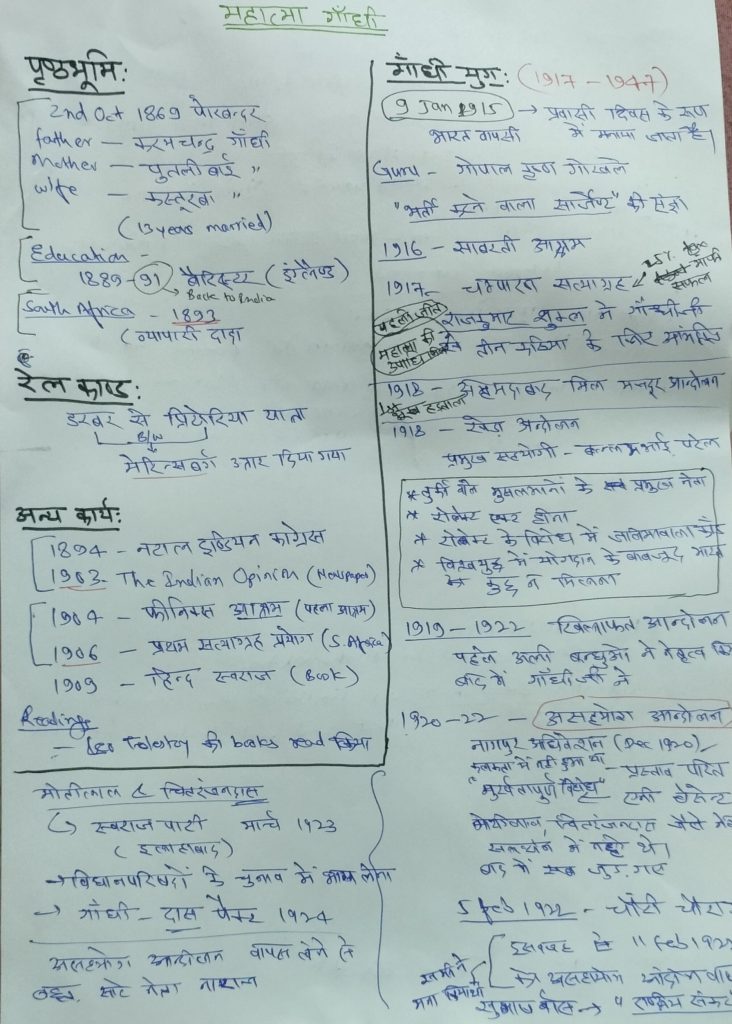 महात्मा गाँधी
पृष्ठभूमि:
2nd Oct 1869 पोरबन्दर
father – करमचन्द्र गाँधी
Mother – पुतलीबाई "
wife – कस्तूरबा "
(13 years married)
Education –
1889-91 बैरिस्टर (इंग्लैण्ड)
Back to India
South Africa - 1893
(व्यापारी दादा
रेल काण्ड:
डरबर से प्रिटोरिया यात्रा
B/W
मेरित्सबर्ग उतार दिया गया
अन्य कार्य:
1894 – नटाल इण्डियन कांग्रेस
1903 - The Indian Opinion (Newspaper)
1904 – फीनिक्स आश्रम (पहला आश्रम)
1906 – प्रथम सत्याग्रह प्रयोग (S. Africa)
1909 – हिन्द स्वराज (Book)
Readings
– Leo Tolestoy की books read किया
मोतीलाल & चितरंजनदास
स्वराज पार्टी मार्च 1923
(इलाहाबाद)
→ विधानपरिषदों के चुनाव में भाग लेना
→ गाँधी – दास पैक्ट 1924
असहयोग आन्दोलन वापस लेने से
नेता नाराज
गाँधी युग: (1917 – 1947)
9 Jan 1915 → प्रवासी दिवस के रूप
भारत वापसी में मनाया जाता है।
Guru – गोपाल कृष्ण गोखले
"भर्ती करने वाला सार्जेण्ट" की संज्ञा
1916 – साबरती आश्रम
1917 – चम्पारन सत्याग्रह 25%
माफी
सफल
पहली जीत
राजकुमार शुक्ल ने गाँधीजी
महात्मा की
उपाधि मिली
से तीन कठिया के लिए
1918 – अहमदाबाद मिल मजदूर आन्दोलन
भूख हड़ताल
1918 – खेड़ा आन्दोलन
प्रमुख सहयोगी – बल्लभभाई पटेल
* मुसलमानों के प्रमुख नेता
* रोलेक्ट एक्ट होना
* रोलेक्ट के विरोध में जलियावाला
* विश्वयुद्ध में योगदान के बावजूद भारत
कुछ न मिलना
1919 – 1922 खिलाफत आन्दोलन
पहले अली बन्धुओ ने नेतृत्व किया
बाद में गाँधीजी ने
1920-22 – असहयोग आन्दोलन
नागपुर अधिवेशन (Dec 1920)
कलकत्ता में नही हुआ था – प्रस्ताव पारित
"मुर्खतापूर्ण विरोध" एनी बेसेन्ट
मोतीलाल, चितरंजनदास जैसे नेता
समर्थन में नही थे।
बाद में जुड़ गए
5 feb 1922 – चौरी चौरा
इस वजह से 11 Feb 1922
को असहयोग आंदोलन
सुभाष बोस → "राष्ट्रीय संकट